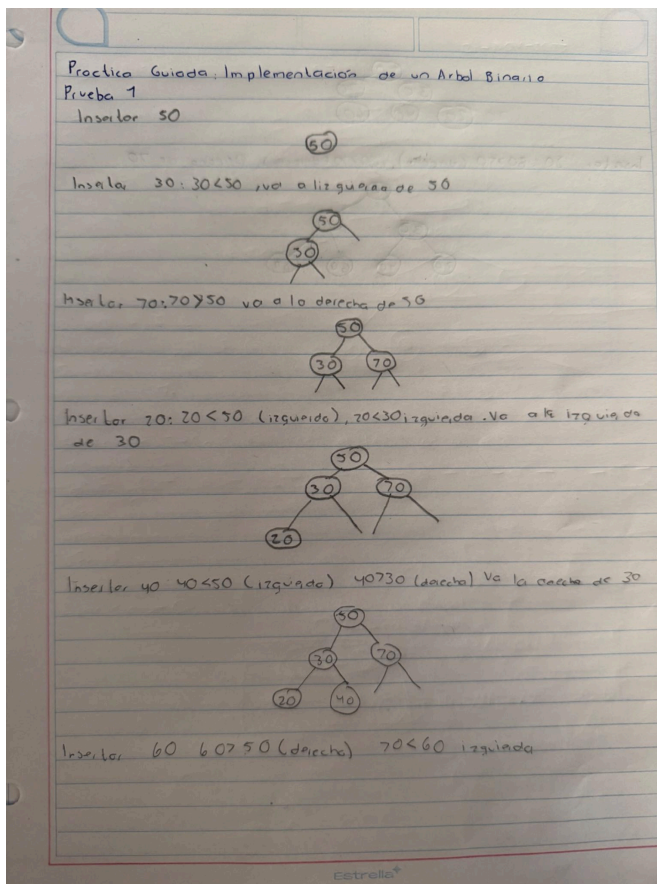 Practica Guiada: Implementación de un Arbol Binario
Prueba 1
Insertar 50
50
Insertar 30: 30<50, va a lizquierda de 50
50
30
Insertar 70: 70>50 va a lo derecha de 50
50
30 70
Insertar 20: 20<50 (izquierdo), 20<30 izquierda. Va a la izquierda
de 30
50
30 70
20
Insertar 40 40<50 (izquierdo) 40>30 (derecho) Va la derecha de 30
50
30 70
20 40
Insertar 60 60>50 (derecho) 70<60 izquierda
Estrella